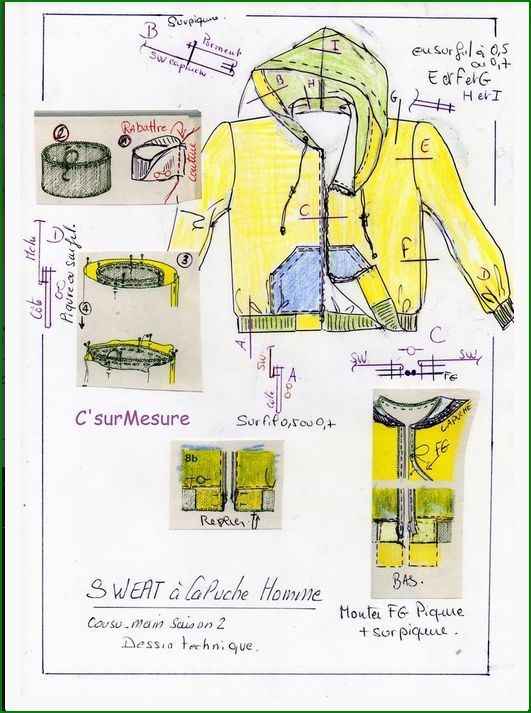 Surpiqure
B
Parment
SW capuche
en surfil à 0,5
ou 0,7
E et F et G
H et I
I
B
H
G
E
C
F
D
A
②
①
RABATTRE
couture
③
④
D
Molu
Cote
Piqure ou surfil.
C'surMesure
SW
A.
Cote
Surfil 0,5 ou 0,7
C
SW
SW
FG
CAPUCHE
FG
8b
Replier
BAS.
Monter FG Piqure
+ surpiqure.
SWEAT à CaPuche Homme
Cousu-main Saison 2
Dessin technique.